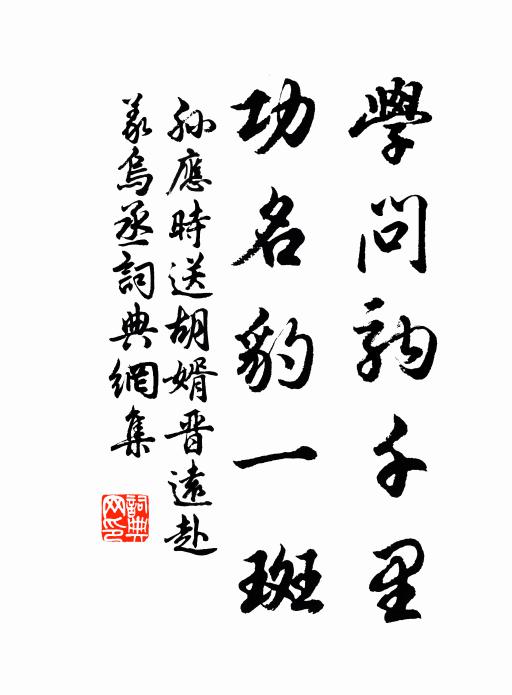 學問駒千里
功名豹一斑
孫應時送胡婿晋遠赴
義烏丞詞典網集
詞典网印